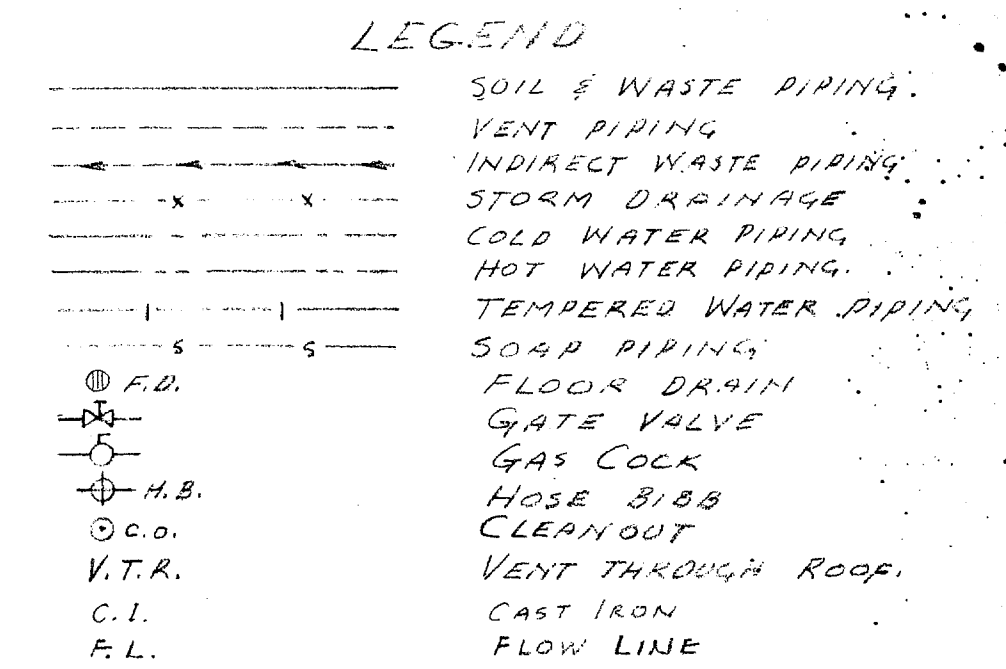 LEGEND
SOIL & WASTE PIPING.
VENT PIPING
INDIRECT WASTE PIPING
x x STORM DRAINAGE
COLD WATER PIPING
HOT WATER PIPING.
TEMPERED WATER PIPING
S S SOAP PIPING
F.D. FLOOR DRAIN
GATE VALVE
GAS COCK
H.B. HOSE BIBB
C.O. CLEANOUT
V.T.R. VENT THROUGH ROOF.
C.I. CAST IRON
F.L. FLOW LINE